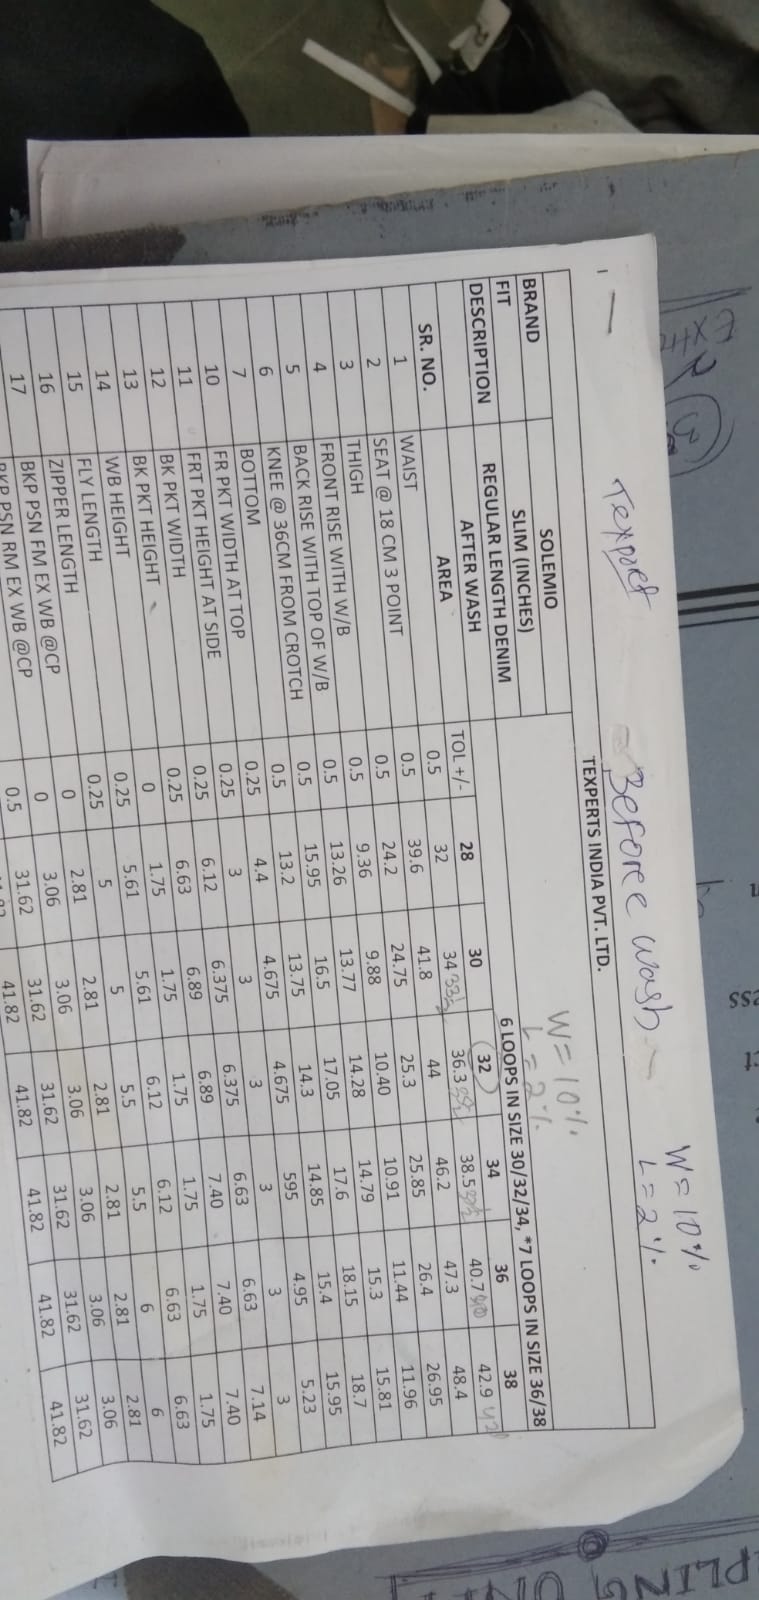 Texport Before wash W = 10%
L = 2%
TEXPERTS INDIA PVT. LTD.
W = 10%
L = 2%
BRAND SOLEMIO
FIT SLIM (INCHES) 6 LOOPS IN SIZE 30/32/34, *7 LOOPS IN SIZE 36/38
DESCRIPTION REGULAR LENGTH DENIM
AFTER WASH
SR. NO. AREA TOL +/- 28 30 32 34 36 38
1 WAIST 0.5 32 34 33½ 36.3 38.5 40.7 42.9
2 SEAT @ 18 CM 3 POINT 0.5 39.6 41.8 44 46.2 47.3 48.4
3 THIGH 0.5 24.2 24.75 25.3 25.85 26.4 26.95
4 FRONT RISE WITH W/B 0.5 9.36 9.88 10.40 10.91 11.44 11.96
5 BACK RISE WITH TOP OF W/B 0.5 13.26 13.77 14.28 14.79 15.3 15.81
6 KNEE @ 36CM FROM CROTCH 0.5 15.95 16.5 17.05 17.6 18.15 18.7
7 BOTTOM 0.5 13.2 13.75 14.3 14.85 15.4 15.95
10 FR PKT WIDTH AT TOP 0.25 4.4 4.675 4.675 595 4.95 5.23
11 FRT PKT HEIGHT AT SIDE 0.25 3 3 3 3 3 3
12 BK PKT WIDTH 0.25 6.12 6.375 6.375 6.63 6.63 7.14
13 BK PKT HEIGHT 0.25 6.63 6.89 6.89 7.40 7.40 7.40
14 WB HEIGHT 0 1.75 1.75 1.75 1.75 1.75 1.75
15 FLY LENGTH 0.25 5.61 5.61 6.12 6.12 6.63 6.63
16 ZIPPER LENGTH 0.25 5 5 5.5 5.5 6 6
17 BKP PSN FM EX WB @CP 0 2.81 2.81 2.81 2.81 2.81 2.81
BKP PSN RM EX WB @CP 0 3.06 3.06 3.06 3.06 3.06 3.06
0.5 31.62 31.62 31.62 31.62 31.62 31.62
41.82 41.82 41.82 41.82 41.82